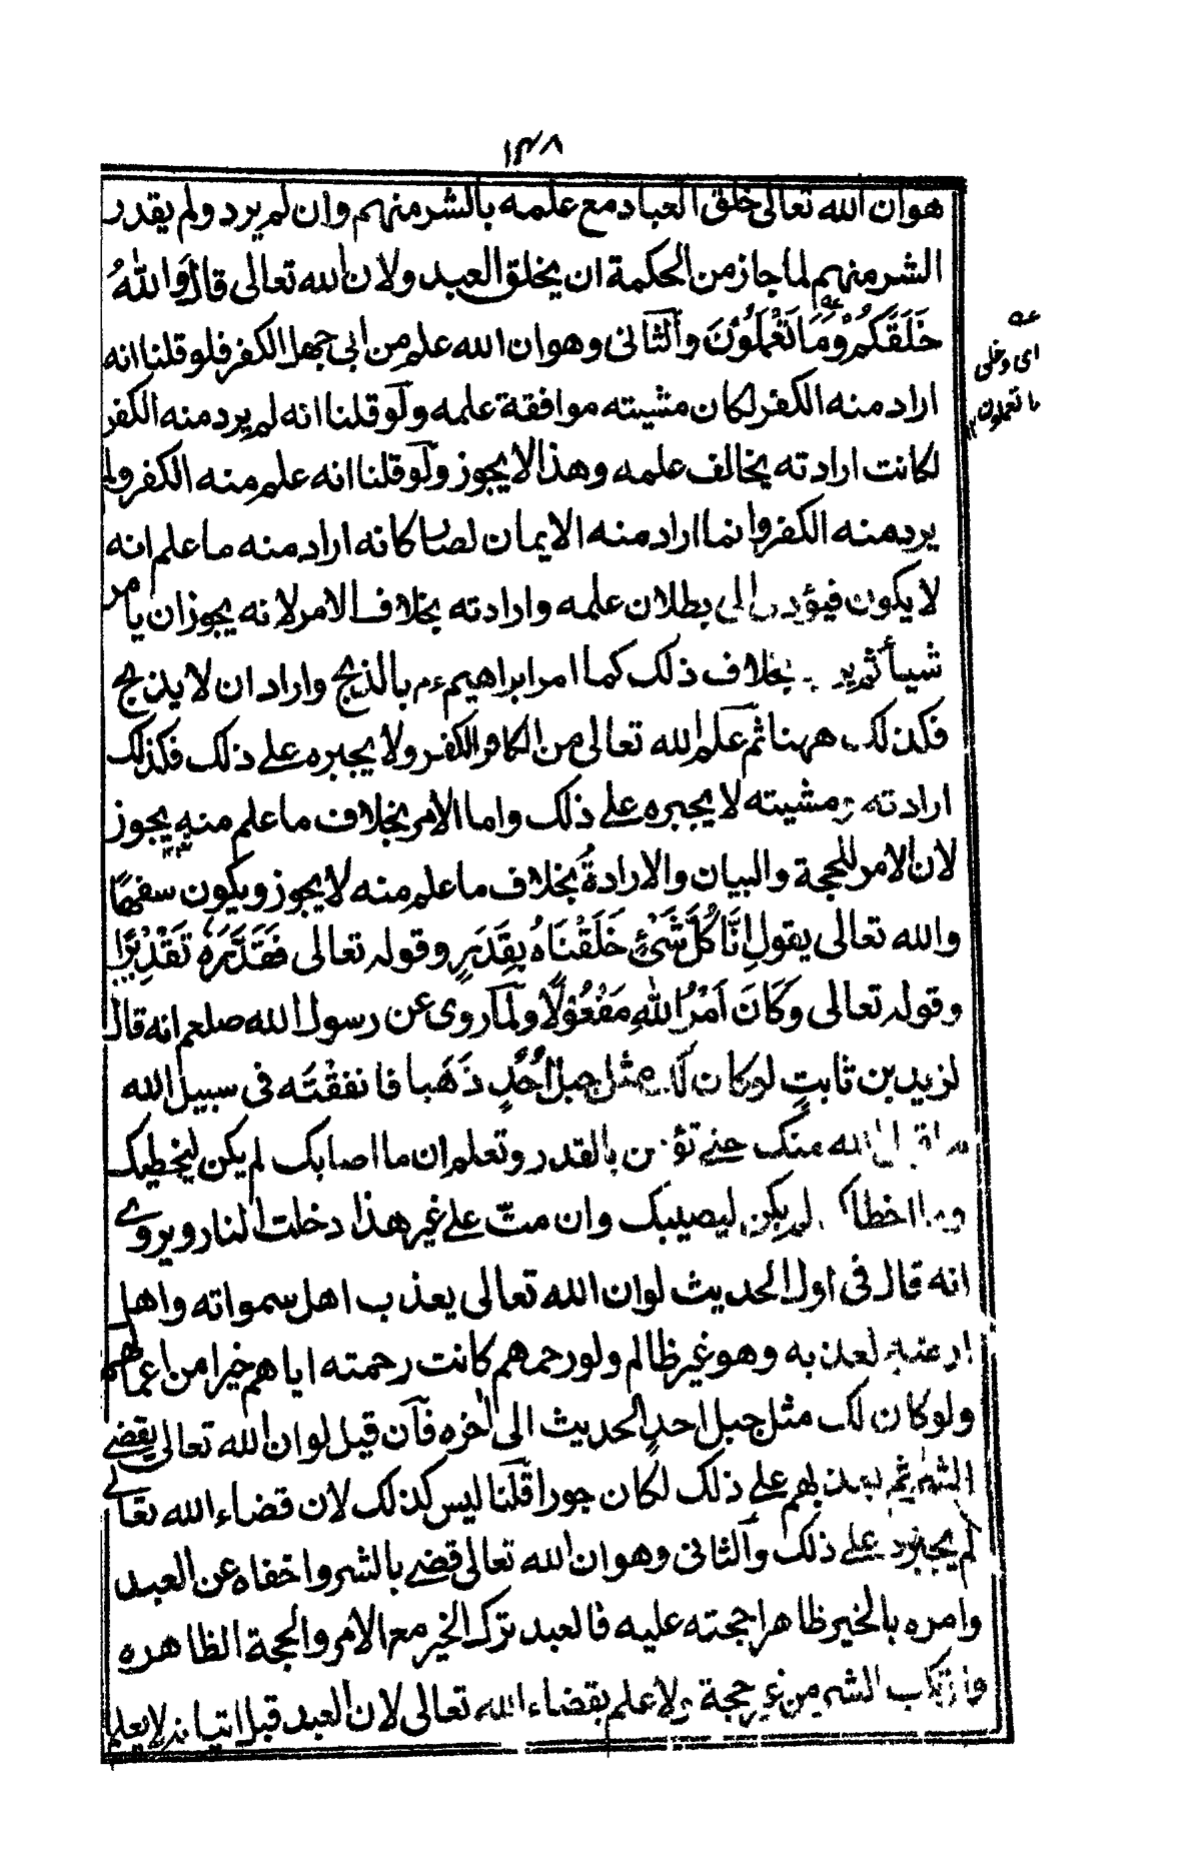 ١٣٨
هوان الله تعالى خلق العباد مع علمه بالشر منهم وان لم يرد ولم يقدر
الشر منهم لما جاز من الحكمة ان يخلق العبد ولان الله تعالى قال وَاللهُ
خَلَقَكُمْ وَمَا تَعْمَلُوْنَ والثانى وهو ان الله علم من ابى جهل الكفر فلو قلنا انه
اراد منه الكفر لكان مشيته موافقة علمه ولو قلنا انه لم يرد منه الكفر
لكانت ارادته يخالف علمه وهذا لا يجوز ولو قلنا انه علم منه الكفر ولم
يرد منه الكفر وانما اراد منه الايمان لصار كانه اراد منه ما علم انه
لا يكون فيؤدى الى بطلان علمه وارادته بخلاف الامر لانه يجوز ان يامر
شيأ ثم يريد بخلاف ذلك كما امر ابراهيم ء م بالذبح واراد ان لا يذبح
فكذلك ههنا ثم علم الله تعالى من الكافر الكفر ولا يجبره على ذلك فكذلك
ارادته ومشيته لا يجبره على ذلك واما الامر بخلاف ما علم منه يجوز
لان الامر للحجة والبيان والارادةُ بخلاف ما علم منه لا يجوز ويكون سفهًا
والله تعالى يقول اِنَّا كُلَّ شَىْءٍ خَلَقْنَاهُ بِقَدَرٍ وقوله تعالى فَقَدَّرَهٗ تَقْدِيْرًا
وقوله تعالى وَكَانَ اَمْرُ اللهِ مَفْعُوْلًا ولما روى عن رسول الله صلعم انه قال
لزيد بن ثابتٍ لو كان لك مثل جبل اُحُدٍ ذَهَبا فانفقْتَه فى سبيل الله
ما قبل الله منك حتى تؤمن بالقدر وتعلم ان ما اصابك لم يكن ليخطيك
وما اخطاك لم يكن ليصيبك وان متّ على غير هذا دخلت النار ويروى
انه قال فى اول الحديث لو ان الله تعالى يعذب اهل سمواته واهل
ارضه لعذبه وهو غير ظالم ولو رحمهم كانت رحمته اياهم خيرا من اعمالهم
ولو كان لك مثل جبل احدٍ الحديث الى اٰخره فان قيل لو ان الله تعالى يقضى
الشر ثم يعذبهم على ذلك لكان جورا قلنا ليس كذلك لان قضاء الله تعالى
لم يجبره على ذلك والثانى وهو ان الله تعالى قضى بالشر واخفاه عن العبد
وامره بالخير ظاهرا حجته عليه فالعبد ترك الخير مع الامر والحجة الظاهرة
وارتكاب الشر من غير حجة ولا علم بقضاء الله تعالى لان العبد قبل اتيانه لا يعلم
اى وخلق
ما تعملون ١٢